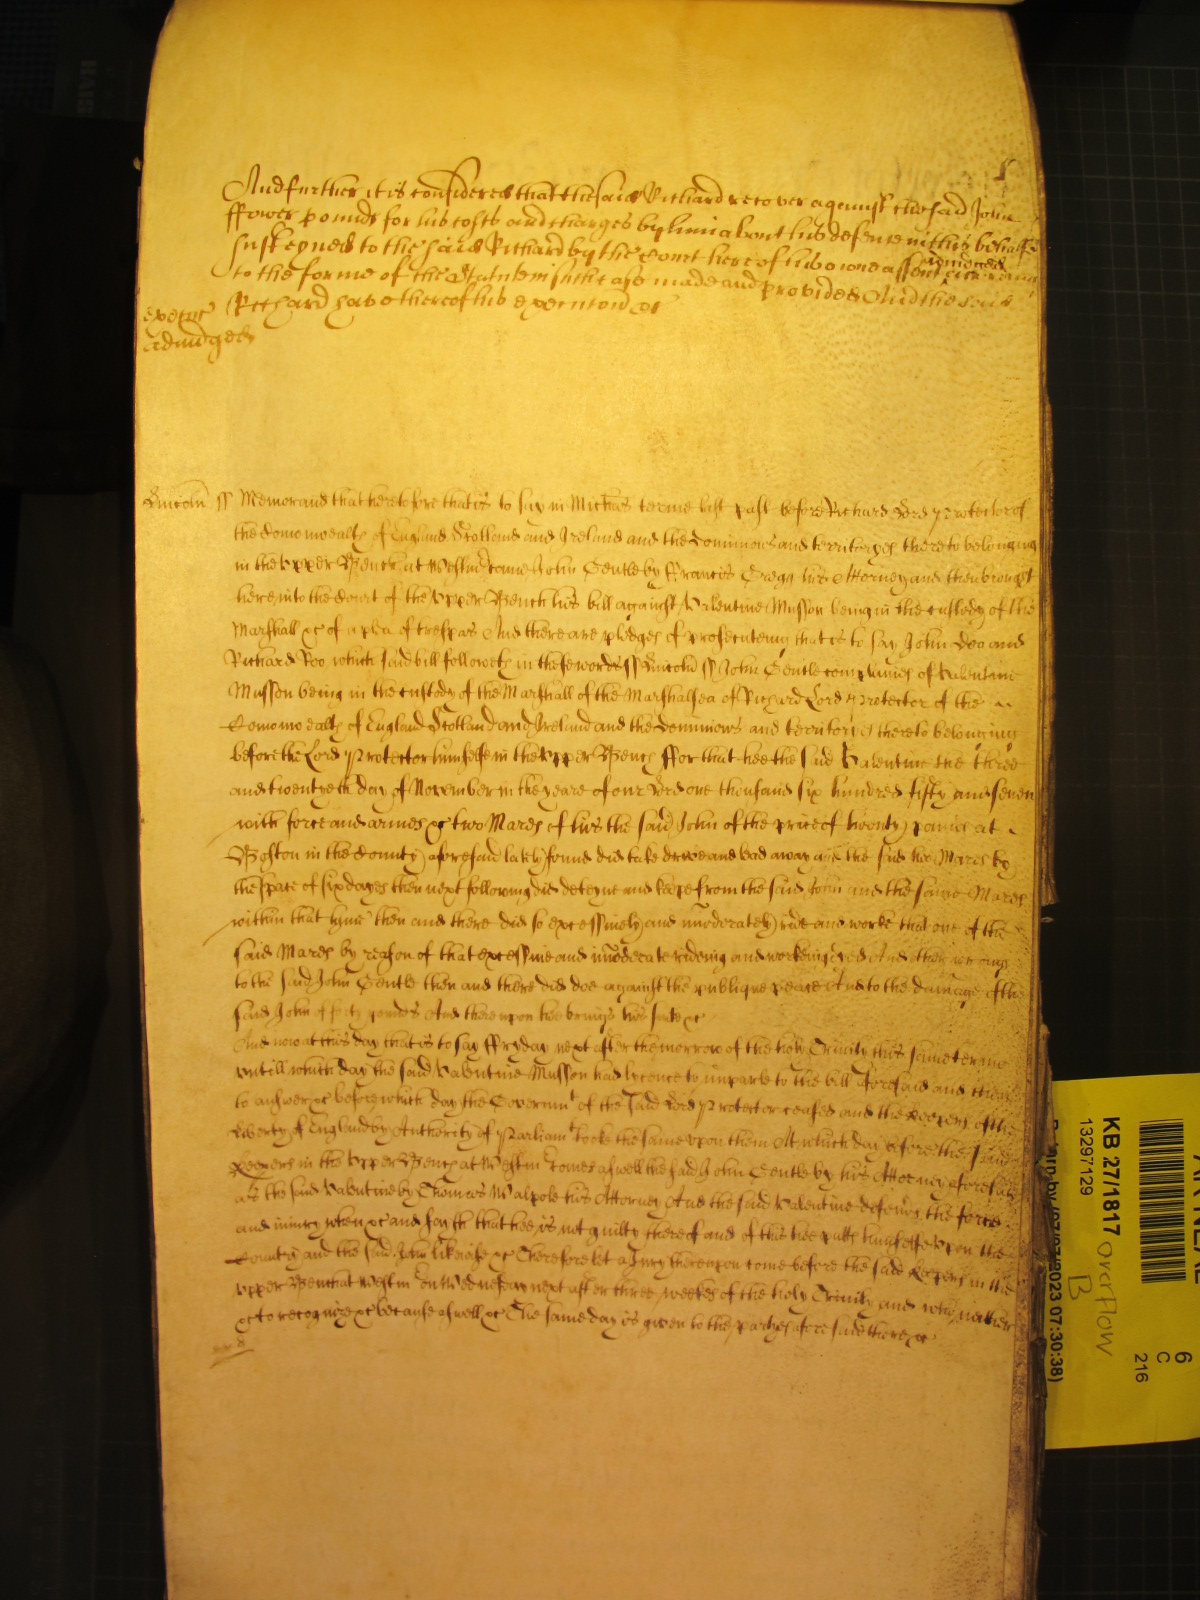 And further it is considered that the said Richard recover against the said John
ffower pounds for his costs and charges by him about his defence in this behalfe
susteyned to the said Richard by the Court here of his owne assent adiudged according
to the forme of the Statute in such case made and provided And the said
Richard have thereof his execucon &c
execuc
adiudged
Lincoln ss Memorand that heretofore that is to say in Michas terme last past before Richard Lord Protector of
the Comonwealth of England Scotland and Ireland and the Dominions and territoryes thereto belonging
in the Upper Bench at Westm came John Gentle by Francis Gregg his Attorney and then brought
here into the Court of the Upper Bench his bill against Valentine Musson being in the custody of the
Marshall &c of a plea of trespas And there are pledges of prosecuteing that is to say John Doo and
Richard Roo which said bill followeth in these words ss Lincoln ss John Gentle complaines of Valentine
Musson being in the custody of the Marshall of the Marshalsea of Richard Lord Protector of the
Comonwealth of England Scotland and Ireland and the Dominions and territoryes thereto belonging
before the Lord Protector himselfe in the Upper Bench ffor that hee the said Valentine the three
and twentyeth day of November in the yeare of our Lord one thousand six hundred fifty and seven
with force and armes &c two Mares of his the said John of the price of twenty pounds at
Boston in the County aforesaid lately found did take drive and lead away and the said two Mares by
the space of six dayes then next following did deteyne and keepe from the said John and the same Mares
within that tyme then and there did so excessively and imoderately ride and worke that one of the
said Mares by reason of that excessive and imoderate rideing and workeing dyed And other wrongs
to the said John Gentle then and there did doe against the publique peace And to the damage of the
said John of forty pounds And thereupon hee brings his suite &c
And now at this day that is to say ffryday next after the morrow of the holy Trinity this same terme
untill which day the said Valentine Musson had lycence to imparle to the bill aforesaid and then
to answer &c before which day the Governmt of the said Lord Protector ceased and the Keepers of the
Liberty of England by Authority of Parliamt tooke the same upon them At which day before the said
Keepers in the Upper Bench at Westm comes aswell the said John Gentle by his Attorney aforesaid
as the said Valentine by Thomas Walpole his Attorney And the said Valentine defends the force
and iniury when &c and sayth that hee is not guilty thereof and of this hee putts himselfe upon the
Country and the said John likewise &c Therefore let a Jury thereupon come before the said Keepers in the
Upper Bench at Westm on Wednesday next after three weekes of the holy Trinity and who neither
&c to recognize &c because aswell &c The same day is given to the partyes aforesaid there &c
KB 27/1817
13297129
overflow
B
6
C
216
2023 07:30:38)